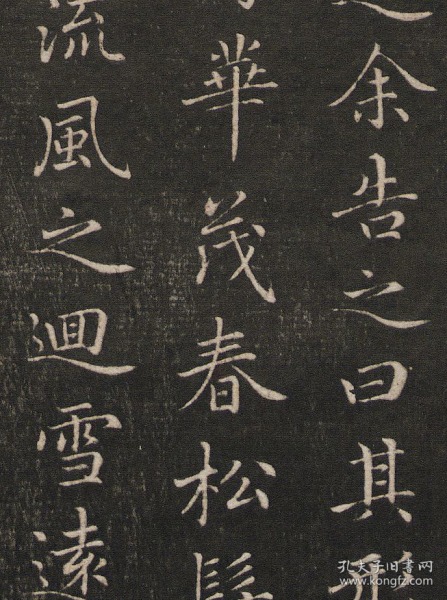 余告之曰其形
華茂春松
流風之迴雪遠
孔夫子旧书网
www.kongfz.com